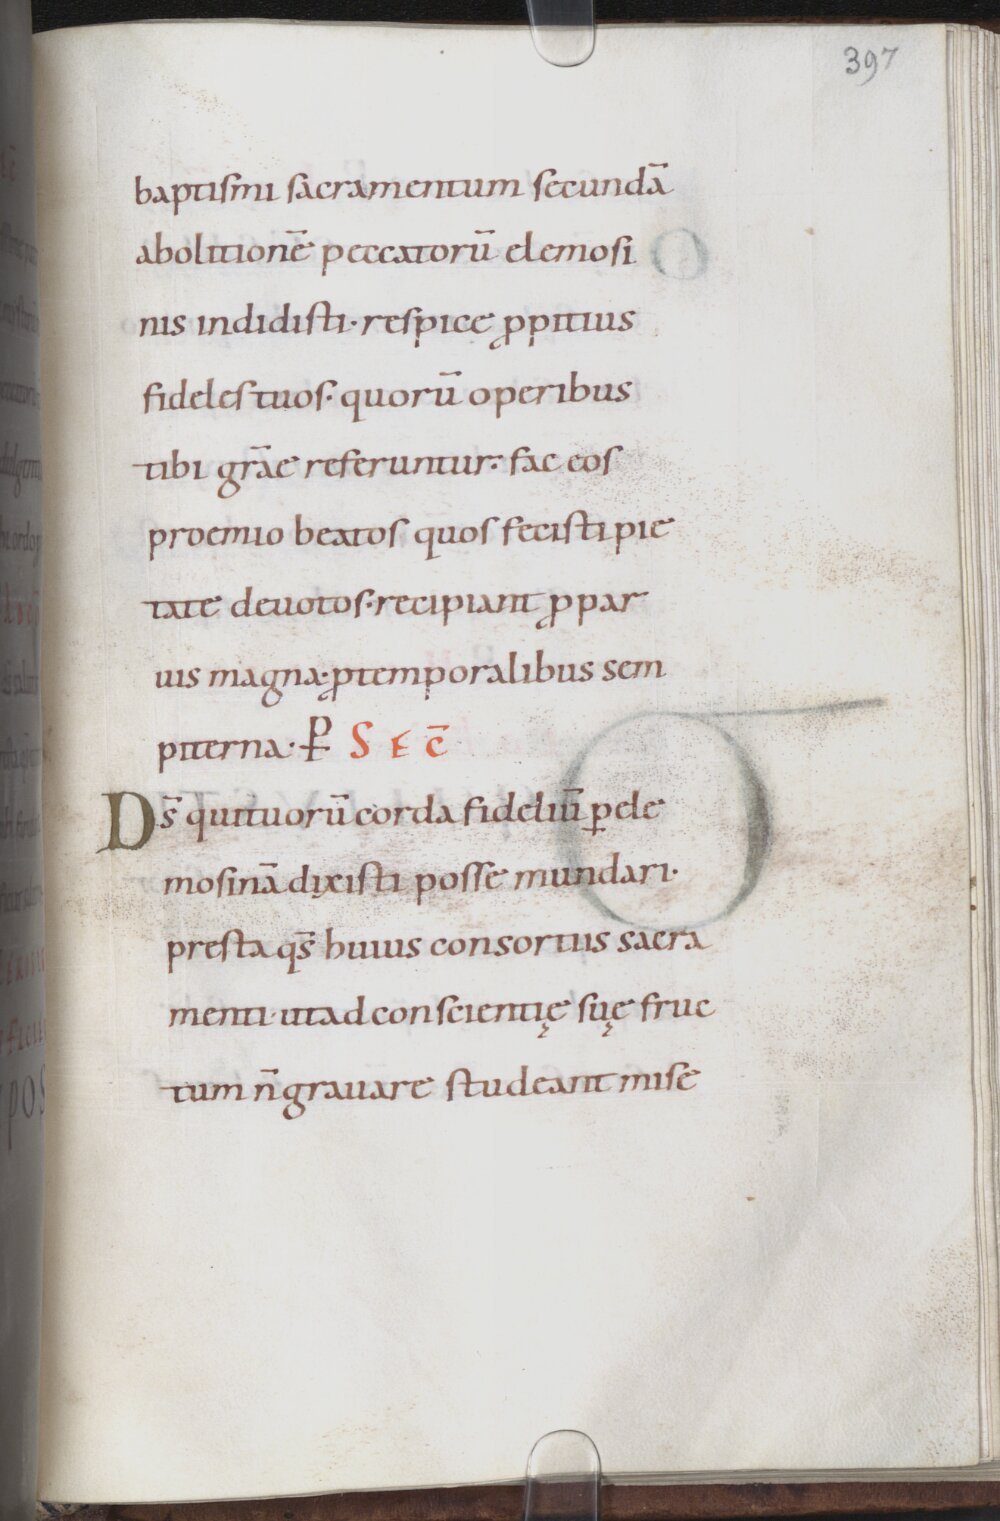 397
baptismi sacramentum secundā
abolitionē peccatorū elemosi
nis indidisti· respice ꝓpitius
fideles tuos· quorū operibus
tibi grāe referuntur· fac eos
proemio beatos quos fecisti pie
tate deuotos· recipiant ꝓ par
uis magna· ꝓ temporalibus sem
piterna· P̶ SEC̄
Ds̄ qui tuorū corda fideliū ꝑ ele
mosinā dixisti posse mundari·
presta qs̄ huius consortiis sacra
menti· ut ad conscientię suę fruc
tum n̄ grauare studeant mise